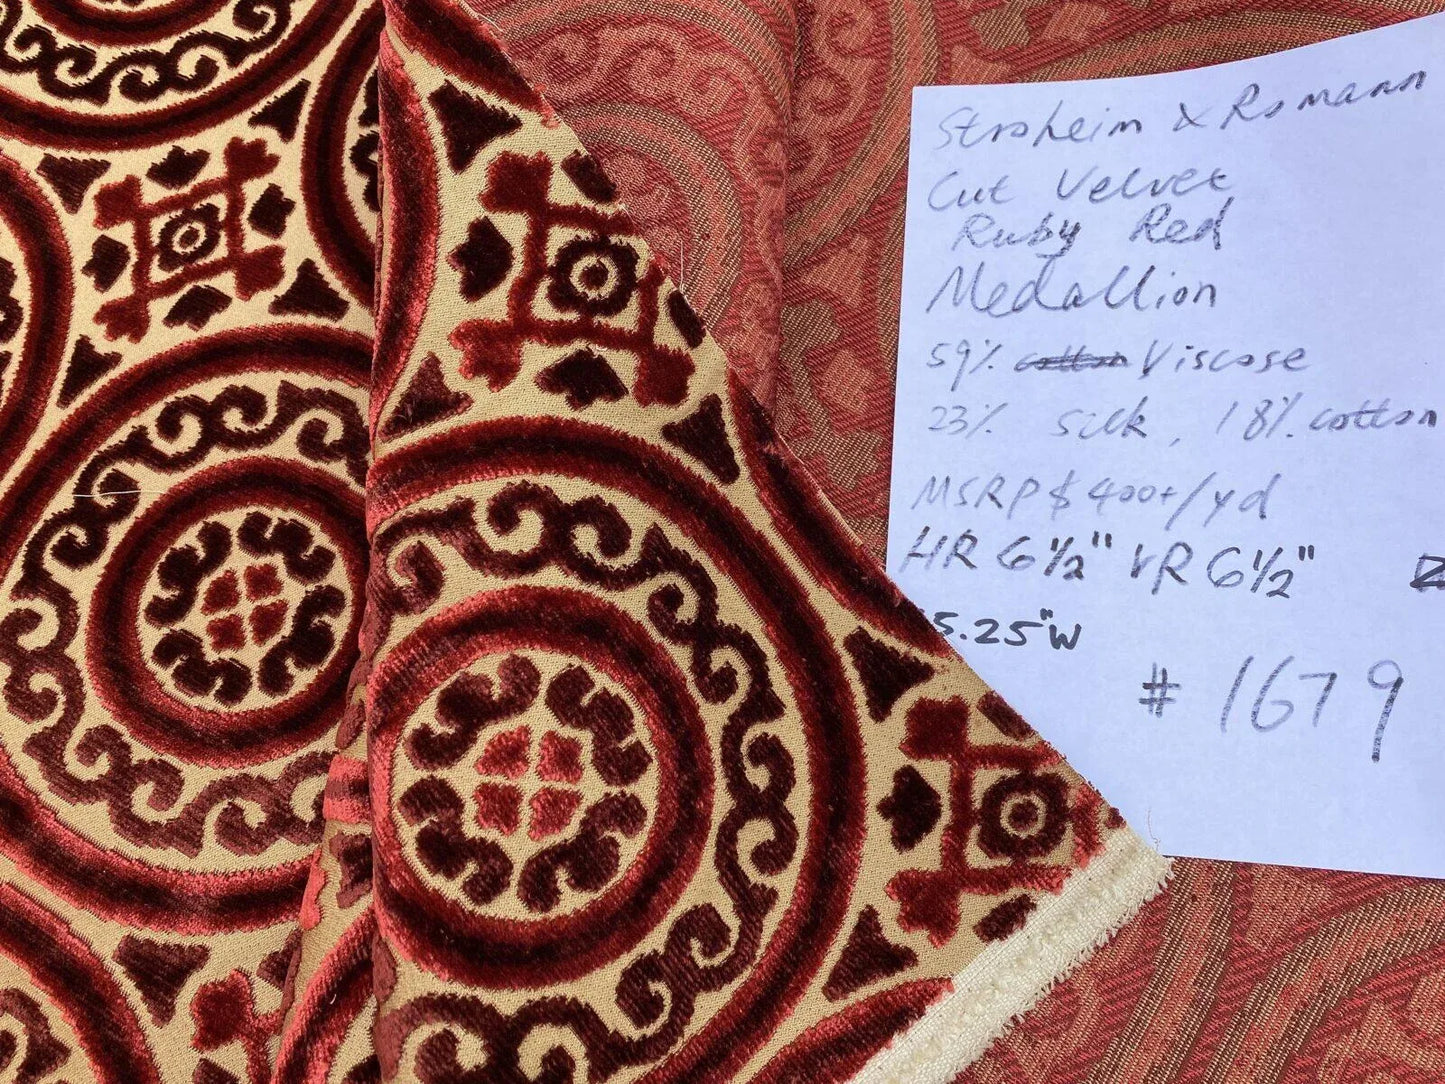 Stroheim & Romann
Cut Velvet
Ruby Red
Medallion
59% cotton Viscose
23% silk, 18% cotton
MSRP $400+/yd
HR 6½" VR 6½"
5.25"W
# 1679